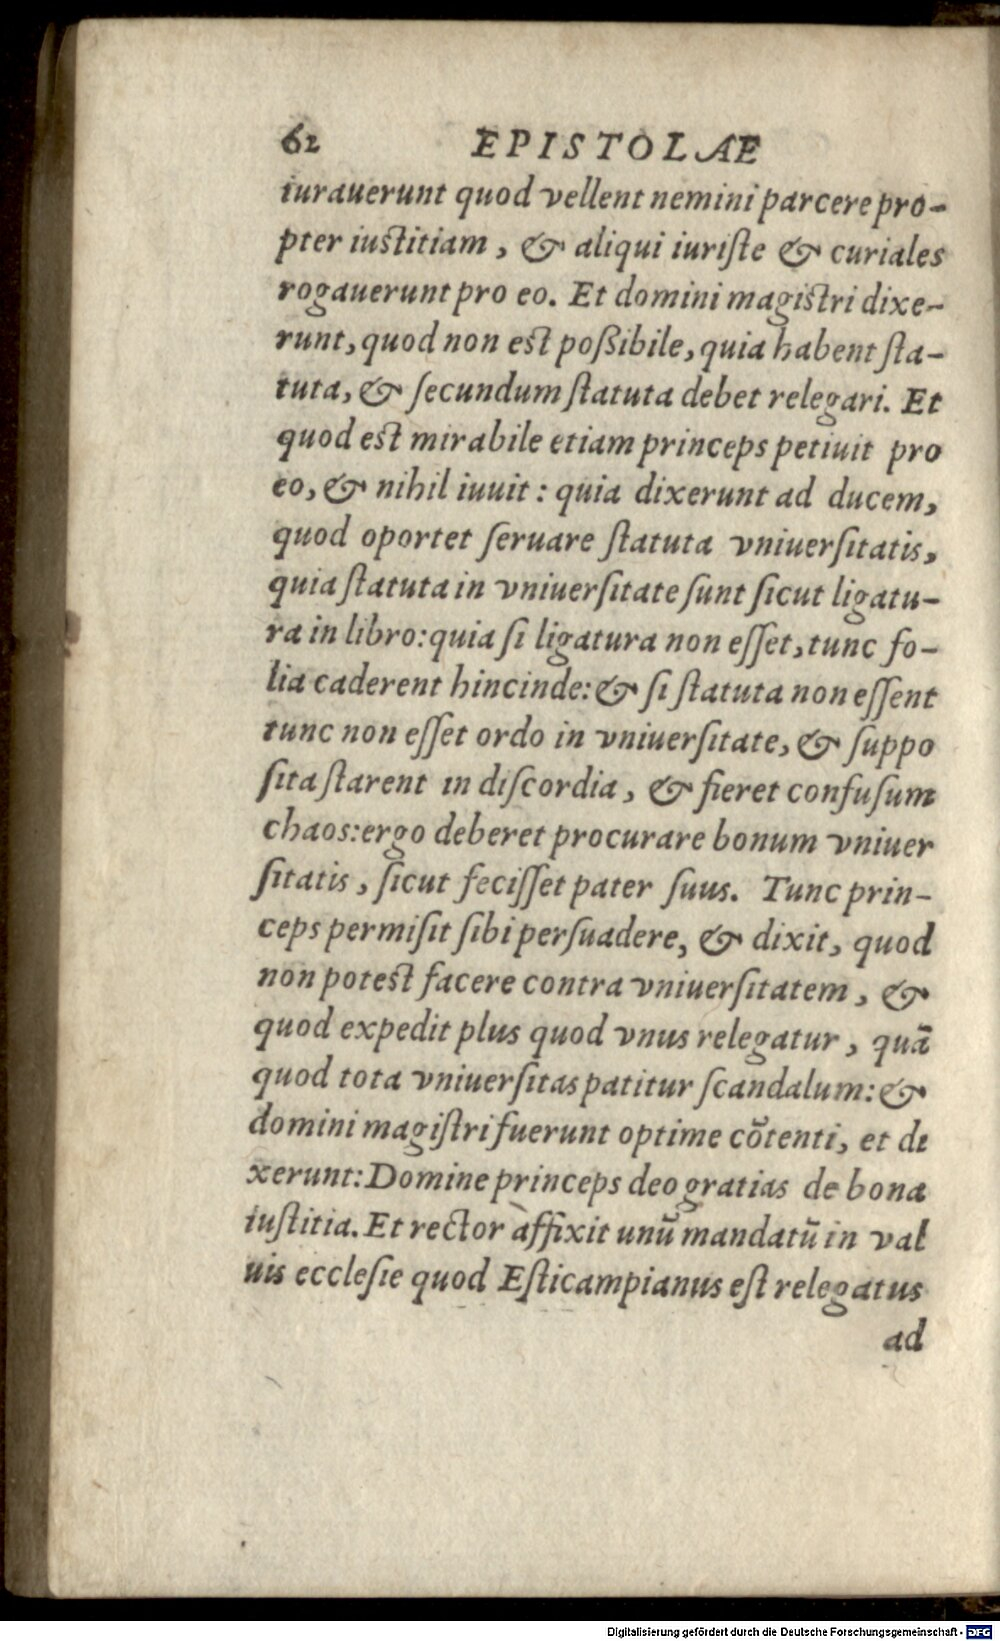 62 EPISTOLAE
iurauerunt quod vellent nemini parcere pro-
pter iustitiam, & aliqui iuriste & curiales
rogauerunt pro eo. Et domini magistri dixe-
runt, quod non est poßibile, quia habent sta-
tuta, & secundum statuta debet relegari. Et
quod est mirabile etiam princeps petiuit pro
eo, & nihil iuuit: quia dixerunt ad ducem,
quod oportet seruare statuta vniuersitatis,
quia statuta in vniuersitate sunt sicut ligatu-
ra in libro: quia si ligatura non esset, tunc fo-
lia caderent hincinde: & si statuta non essent
tunc non esset ordo in vniuersitate, & suppo
sita starent in discordia, & fieret confusum
chaos: ergo deberet procurare bonum vniuer
sitatis, sicut fecisset pater suus. Tunc prin-
ceps permisit sibi persuadere, & dixit, quod
non potest facere contra vniuersitatem, &
quod expedit plus quod vnus relegatur, quā
quod tota vniuersitas patitur scandalum: &
domini magistri fuerunt optime cōtenti, et di
xerunt: Domine princeps deo gratias de bona
iustitia. Et rector àffixit unū mandatū in val
uis ecclesie quod Esticampianus est relegatus
ad
Digitalisierung gefördert durch die Deutsche Forschungsgemeinschaft - DFG